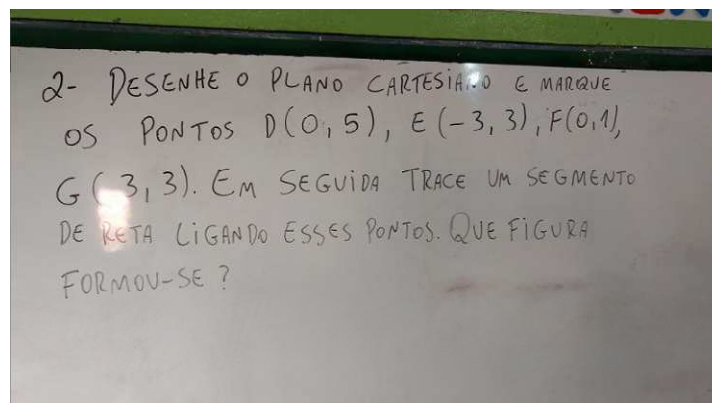 2- DESENHE O PLANO CARTESIANO E MARQUE
OS PONTOS D(0,5), E(-3,3), F(0,1),
G(3,3). EM SEGUIDA TRACE UM SEGMENTO
DE RETA LIGANDO ESSES PONTOS. QUE FIGURA
FORMOU-SE?